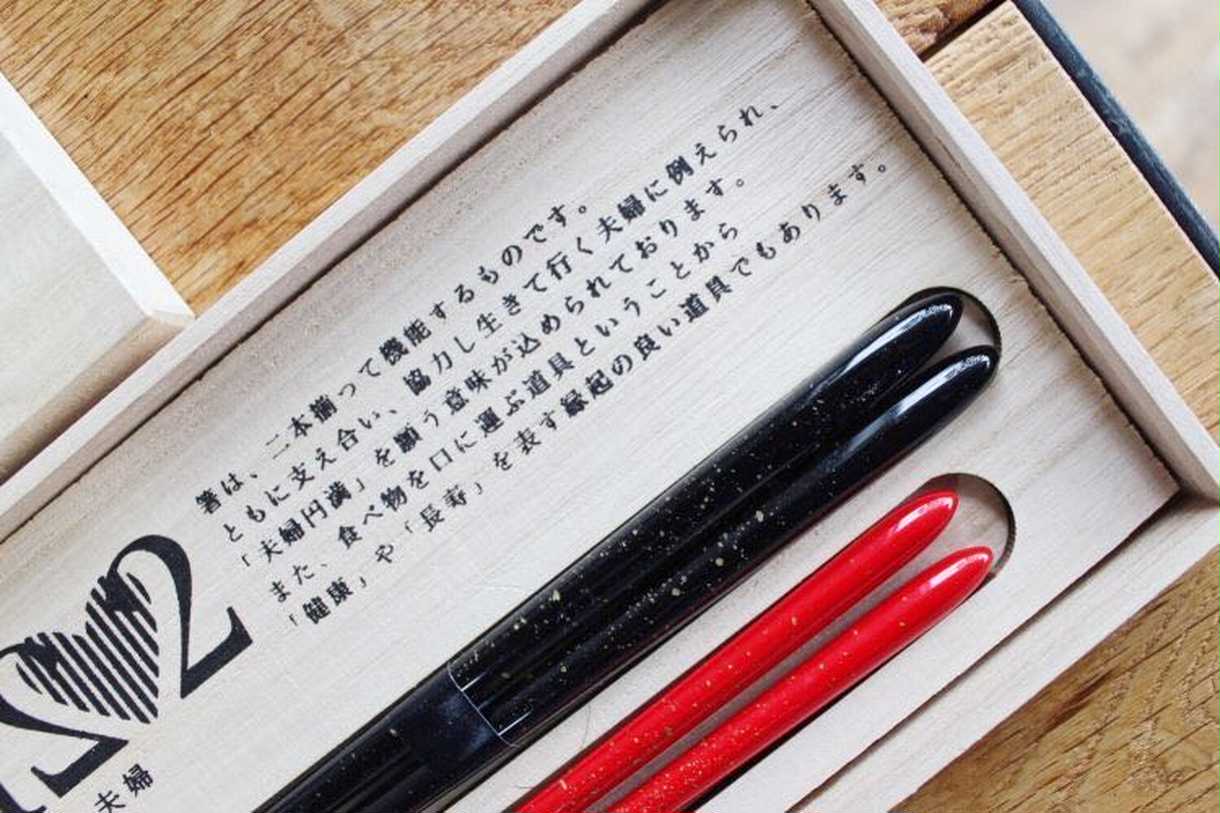 箸は、二本揃って機能するものです。
ともに支え合い、協力し生きて行く夫婦に例えられ、
「夫婦円満」を願う意味が込められております。
また、食べ物を口に運ぶ道具ということから
「健康」や「長寿」を表す縁起の良い道具でもあります。
夫婦